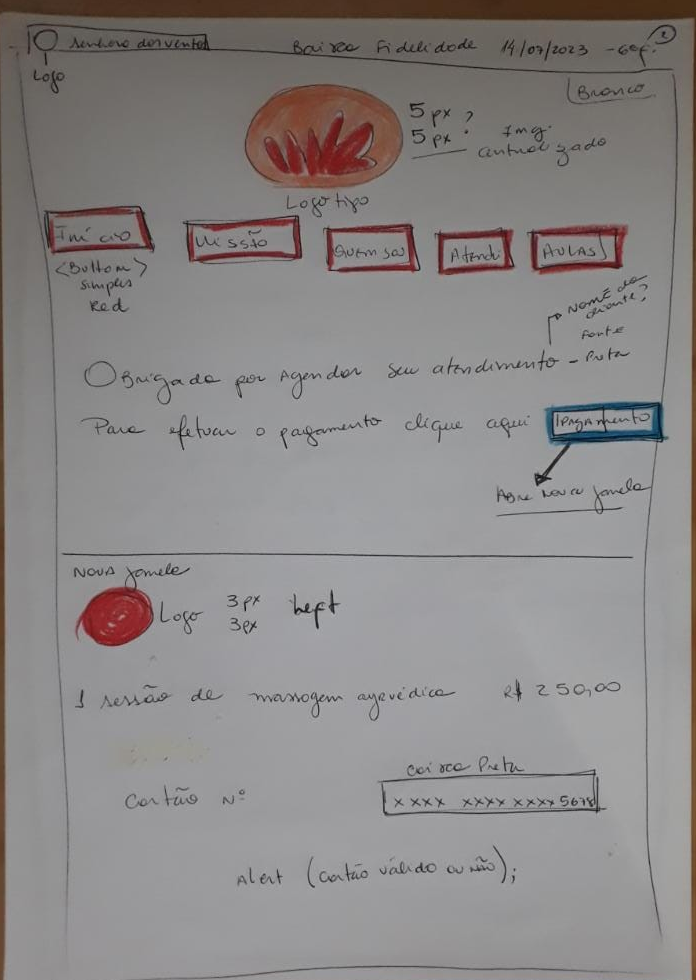 Senhora dos ventos Baixa Fidelidade 14/07/2023
2
Logo
Branco
5 px ?
5 px
img
centralizado
Logo tipo
Início
Missão
Quem sou
Atendi
AULAS
<Buttom>
simples
Red
Nome do
fonte
Preta
Obrigada por Agendar seu atendimento -
Para efetuar o pagamento clique aqui Pagamento
Abre nova janela
NOVA janela
Logo 3px Left
3px
1 sessão de massagem ayuvédica R$ 250,00
caixa Preta
Cartão Nº xxxx xxxx xxxx 5678
Alert (cartão válido ou não);